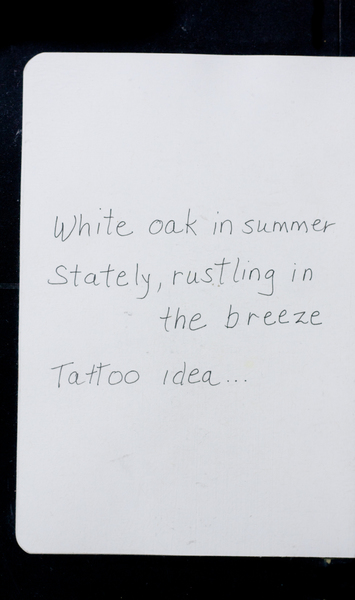 White oak in summer
Stately, rustling in
the breeze
Tattoo idea...